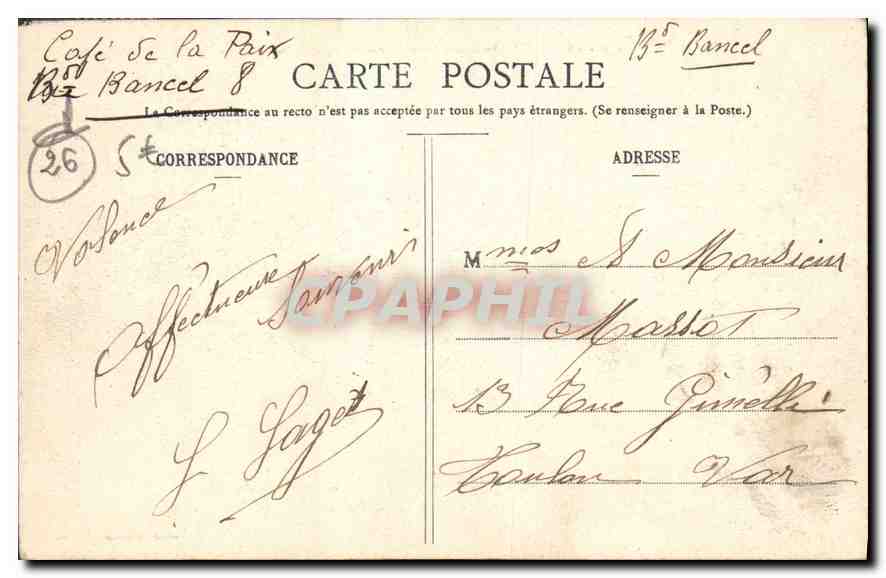 Café de la Paix
Bd Bancel 8
Bd Bancel
CARTE POSTALE
La Correspondance au recto n'est pas acceptée par tous les pays étrangers. (Se renseigner à la Poste.)
26
5€
CORRESPONDANCE
ADRESSE
Valence
Affectueux
Souvenir
Saget
Mmes et Monsieur
Massot
13 Rue Gimelli
Toulon Var
CPAPHIL